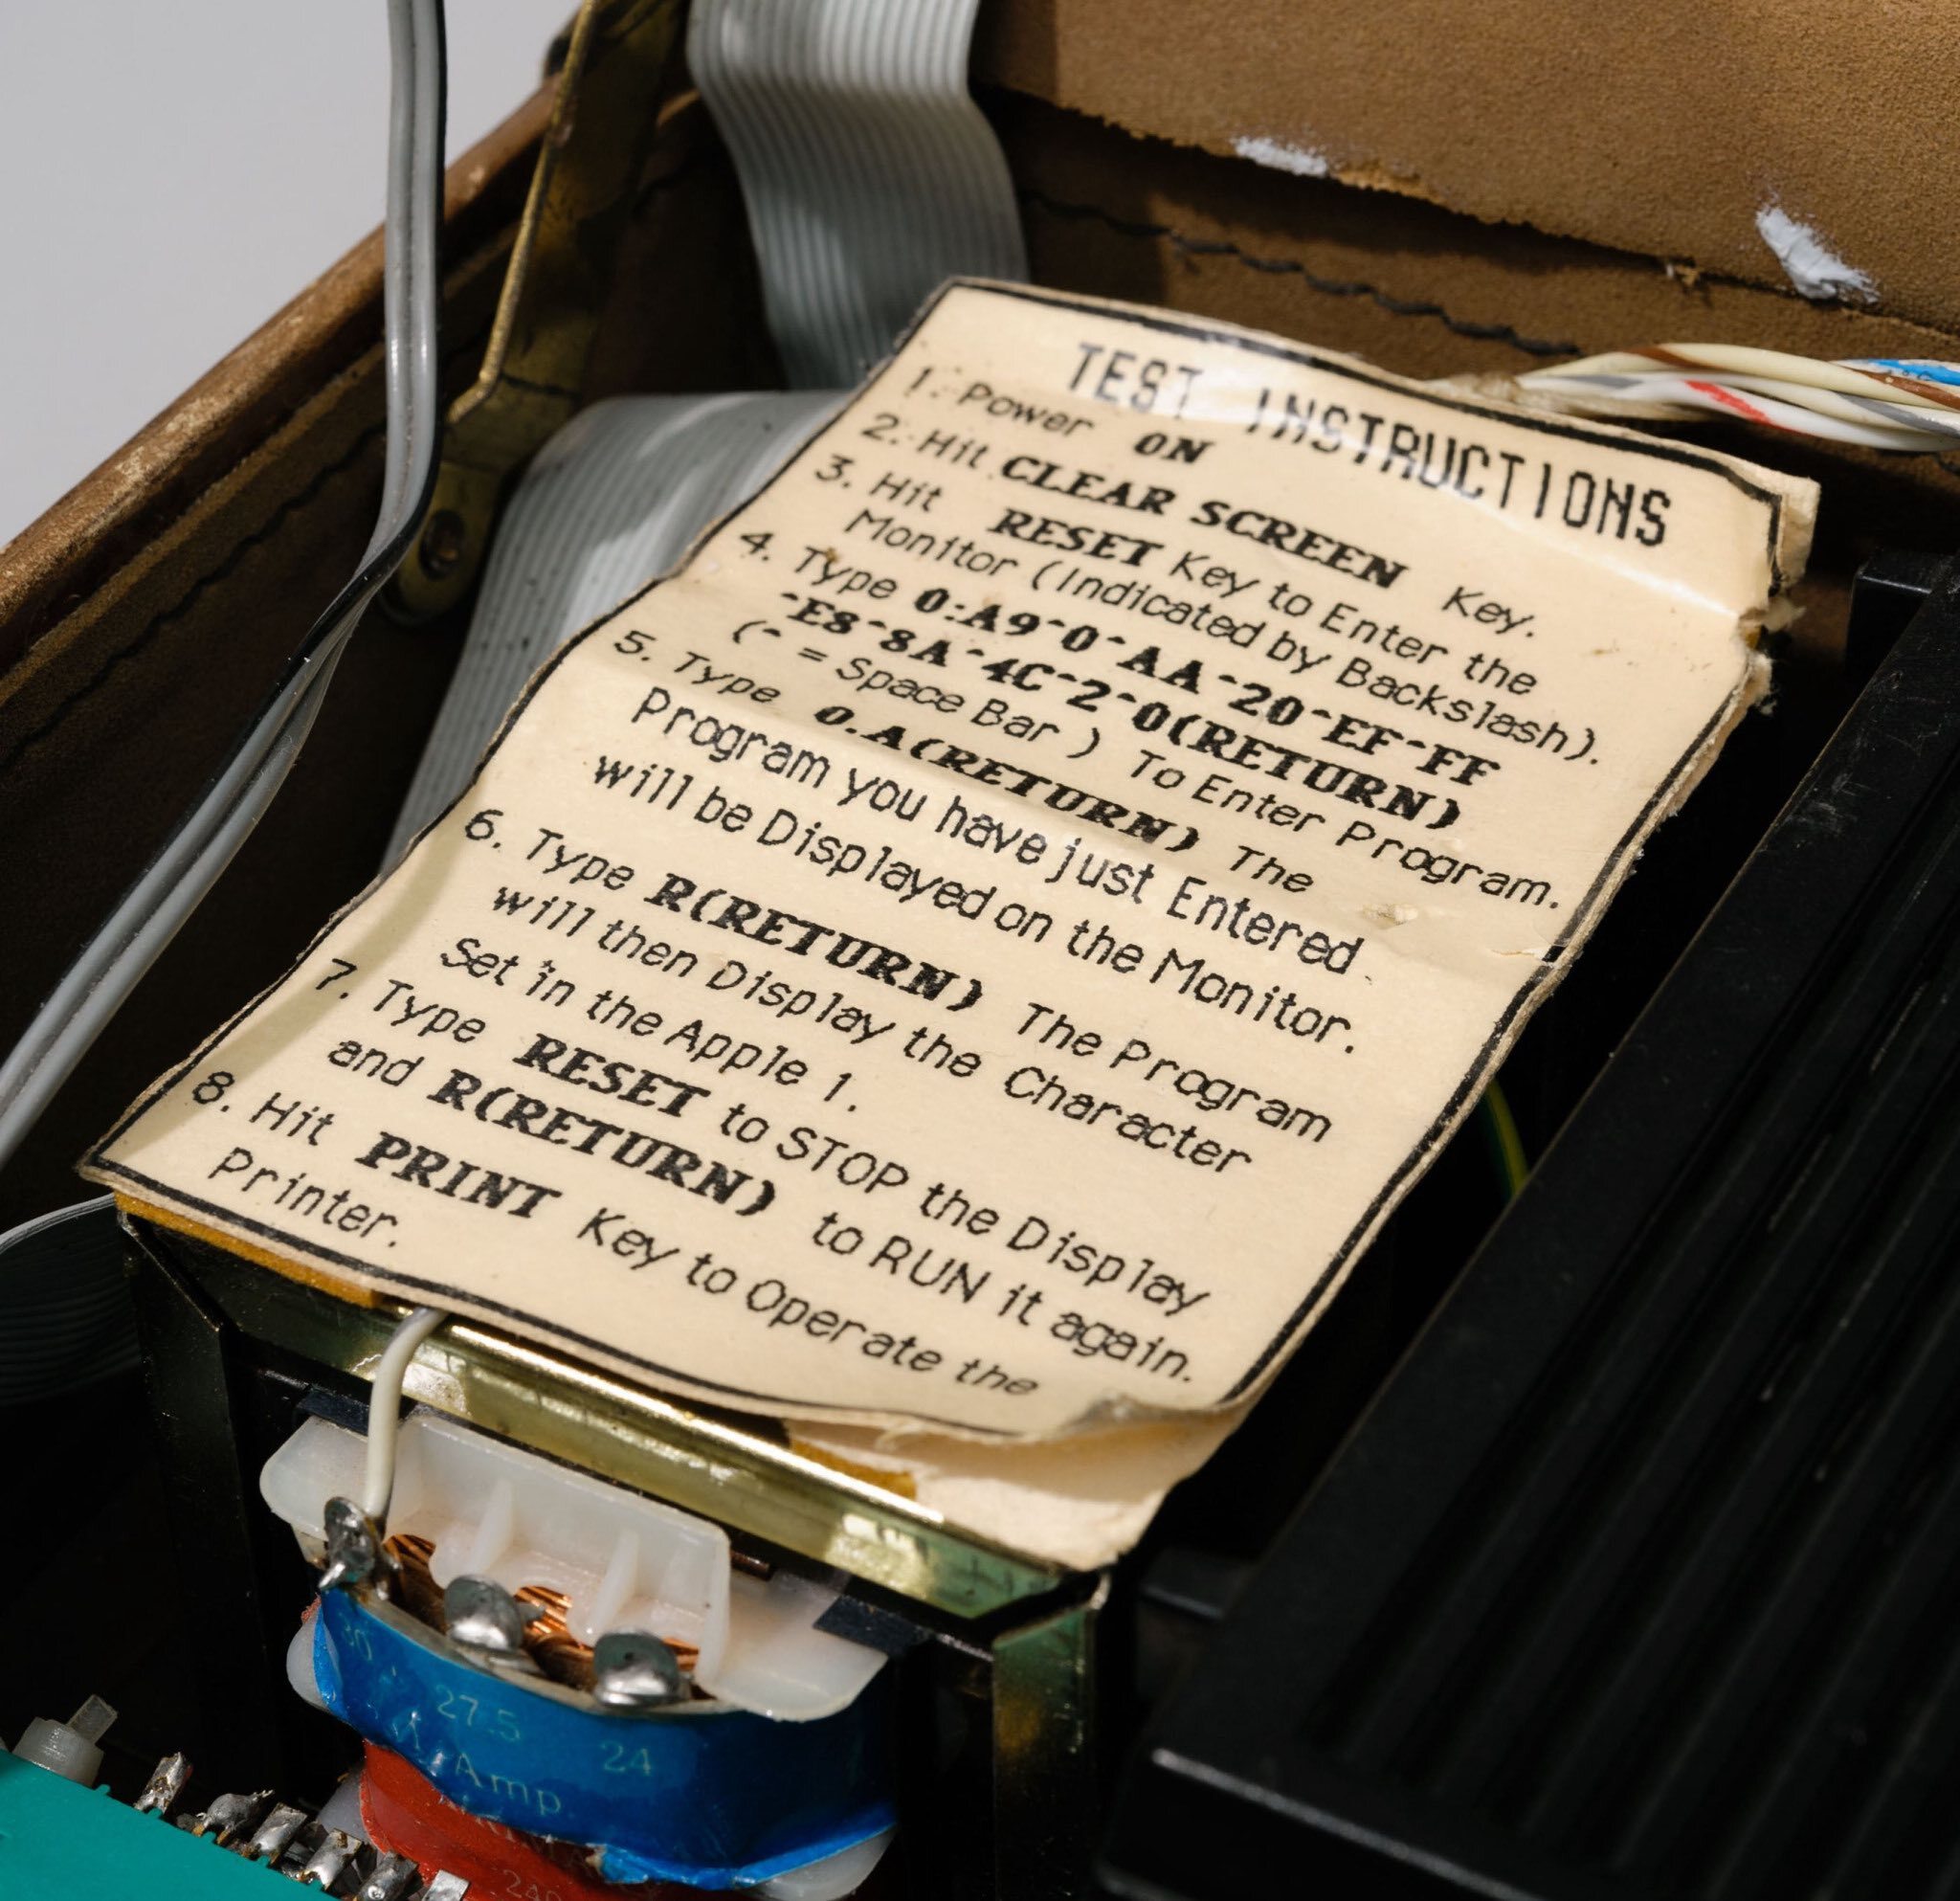 TEST INSTRUCTIONS
1. Power ON
2. Hit CLEAR SCREEN Key.
3. Hit RESET Key to Enter the
Monitor (Indicated by Backslash).
4. Type 0:A9^0^AA^20^EF^FF
^E8^8A^4C^2^0(RETURN)
(^ = Space Bar ) To Enter Program.
5. Type 0.A(RETURN) The
Program you have just Entered
will be Displayed on the Monitor.
6. Type R(RETURN) The Program
will then Display the Character
Set in the Apple 1.
7. Type RESET to STOP the Display
and R(RETURN) to RUN it again.
8. Hit PRINT Key to Operate the
Printer.
30
27.5
24
Amp.